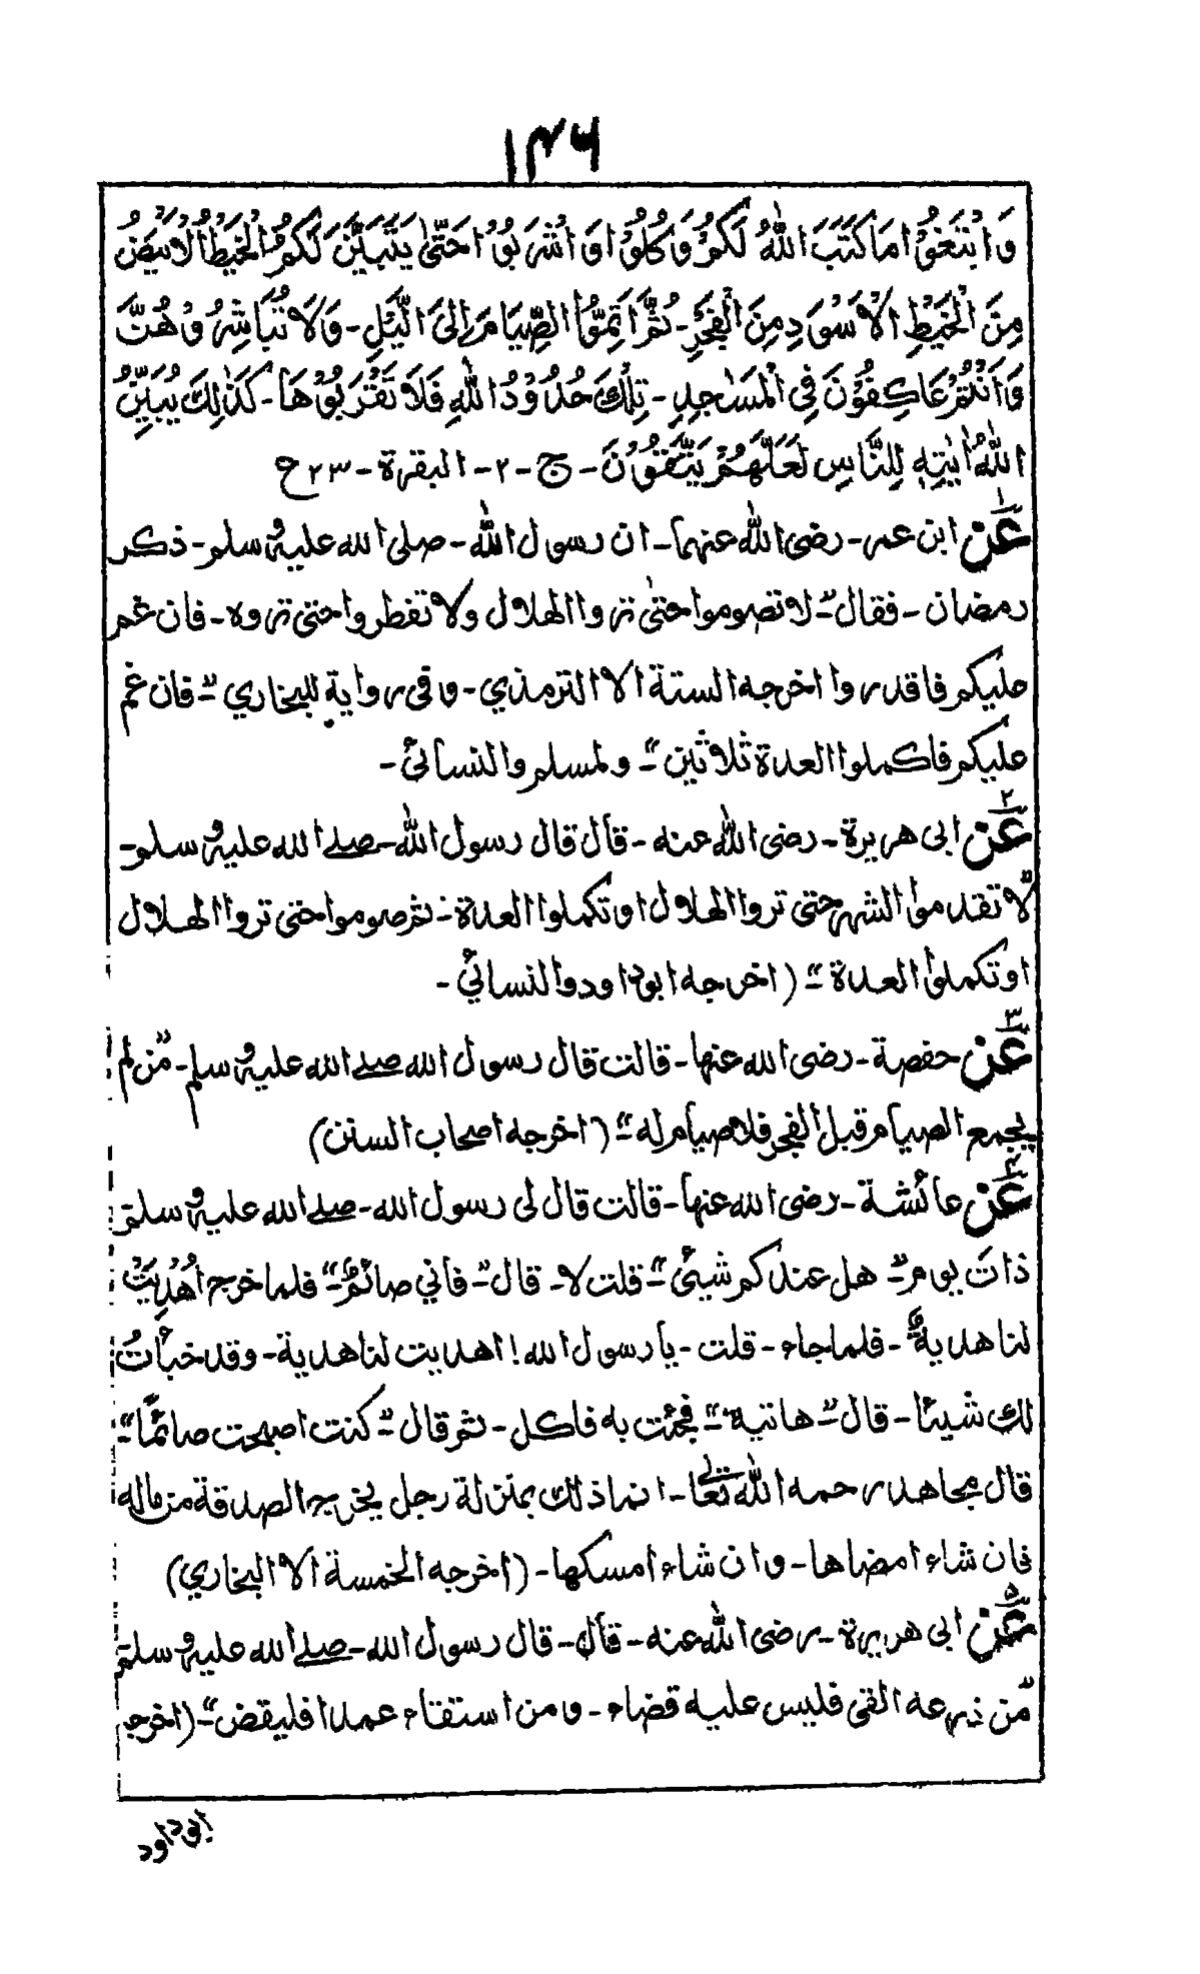 ۱۴۶
وَابْتَغُوْا مَا كَتَبَ اللّٰهُ لَكُمْ وَكُلُوْا وَاشْرَبُوْا حَتّٰى يَتَبَيَّنَ لَكُمُ الْخَيْطُ الْاَبْيَضُ
مِنَ الْخَيْطِ الْاَسْوَدِ مِنَ الْفَجْرِ - ثُمَّ اَتِمُّوا الصِّيَامَ اِلَى الَّيْلِ - وَلَا تُبَاشِرُوْهُنَّ
وَاَنْتُمْ عَاكِفُوْنَ فِي الْمَسٰجِدِ - تِلْكَ حُدُوْدُ اللّٰهِ فَلَا تَقْرَبُوْهَا - كَذٰلِكَ يُبَيِّنُ
اللّٰهُ اٰيٰتِهٖ لِلنَّاسِ لَعَلَّهُمْ يَتَّقُوْنَ - ج - ۲ - البقرة - ۲۳ ح
۱ عن ابن عمر - رضى الله عنهما - ان رسول الله - صلى الله عليه وسلم - ذكر
رمضان - فقال " لا تصوموا حتى تروا الهلال ولا تفطروا حتى تروه - فان غم
عليكم فاقدروا اخرجه الستة الا الترمذي - وفى رواية للبخاري " فان غم
عليكم فاكملوا العدة ثلاثين " ولمسلم والنسائي -
۲ عن ابى هريرة - رضى الله عنه - قال قال رسول الله - صلے الله عليه وسلم -
"لا تقدموا الشهر حتى تروا الهلال او تكملوا العدة - ثم صوموا حتى تروا الهلال
او تكملوا العدة " (اخرجه ابوداود والنسائي -
۳ عن حفصة - رضى الله عنها - قالت قال رسول الله صلے الله عليه وسلم - "من لم
يجمع الصيام قبل الفجر فلا صيام له " (اخرجه اصحاب السنن)
۴ عن عائشة - رضى الله عنها - قالت قال لى رسول الله - صلے الله عليه وسلم
ذات يوم " هل عندكم شيئ " قلت لا - قال " فاني صائم " فلما خرج اُهْدِيَتْ
لنا هدية - فلما جاء - قلت - يا رسول الله! اهديت لنا هدية - وقد خبأتُ
لك شيئا - قال " هاتيه " فجئت به فاكل - ثم قال " كنت اصبحت صائمًا "
قال مجاهد رحمه الله تعالى - انما ذلك بمنزلة رجل يخرج الصدقة من ماله
فان شاء امضاها - وان شاء امسكها - (اخرجه الخمسة الا البخاري)
۵ عن ابى هريرة - رضى الله عنه - قال - قال رسول الله - صلے الله عليه وسلم
"من ذرعه القى فليس عليه قضاء - ومن استقاء عمدا فليقض " (اخرجه
ابوداود